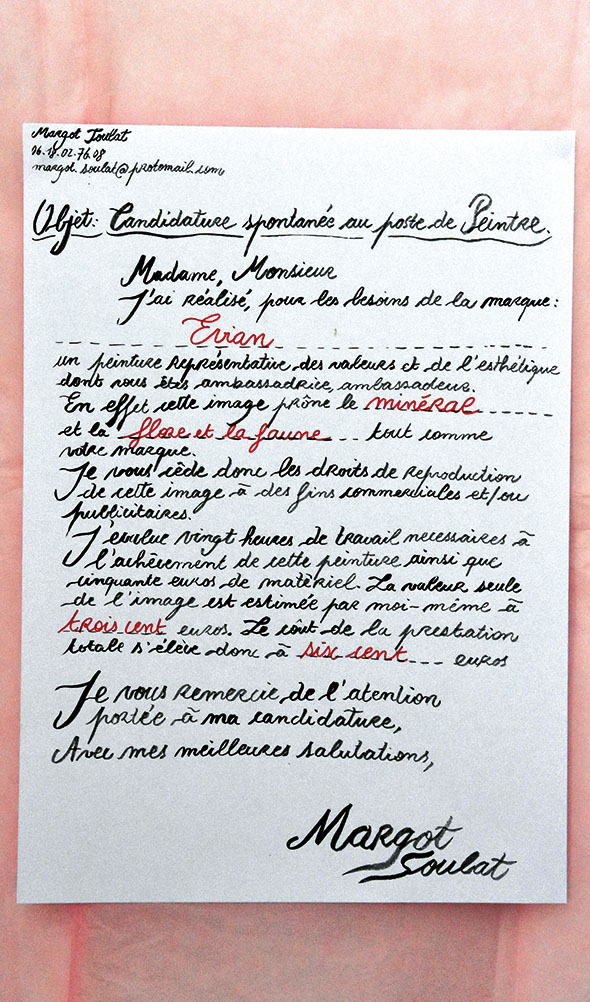 Margot Soulat
06.18.02.76.08
margot.soulat@protomail.com
Objet: Candidature spontanée au poste de Peintre.
Madame, Monsieur
J'ai réalisé, pour les besoins de la marque:
Evian
un peinture représentative des valeurs et de l'esthétique
dont vous êtes ambassadrice, ambassadeur.
En effet cette image prône le minéral
et la flore et la faune tout comme
votre marque.
Je vous cède donc les droits de reproduction
de cette image à des fins commerciales et/ou
publicitaires.
J'évalue vingt heures de travail necessaires à
l'achèvement de cette peinture ainsi que
cinquante euros de matériel. La valeur seule
de l'image est estimée par moi-même à
trois cent euros. Le coût de la prestation
totale s'élève donc à six cent euros
Je vous remercie de l'atention
portée à ma candidature,
Avec mes meilleures salutations,
Margot
Soulat